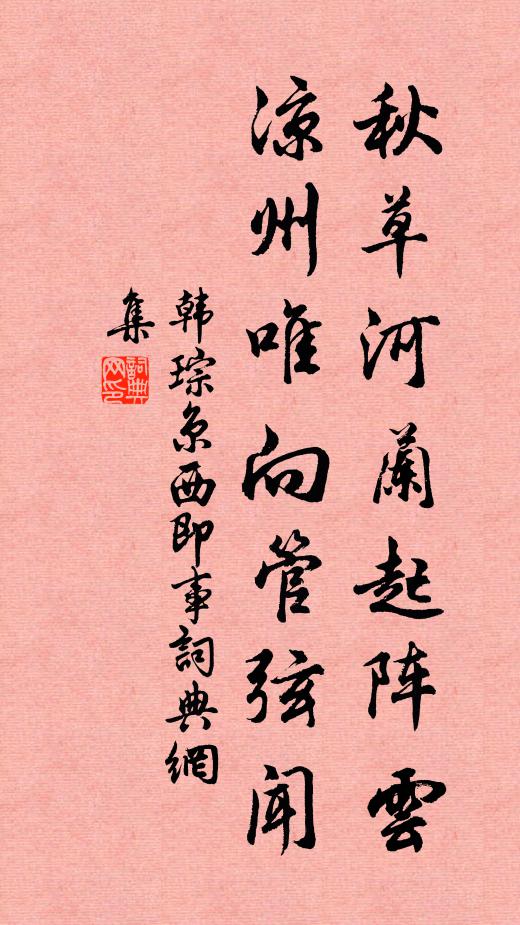 秋草河蘭起阵雲
凉州唯向管弦闻
韩琮京西即事詞典網
集
詞典
网印